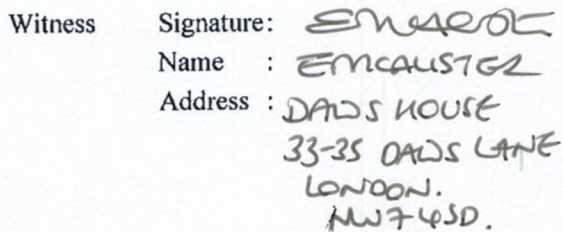 Witness Signature:
Name : EMCALISTER
Address : DAWS HOUSE
33-35 DAWS LANE
LONDON.
NW7 4SD.